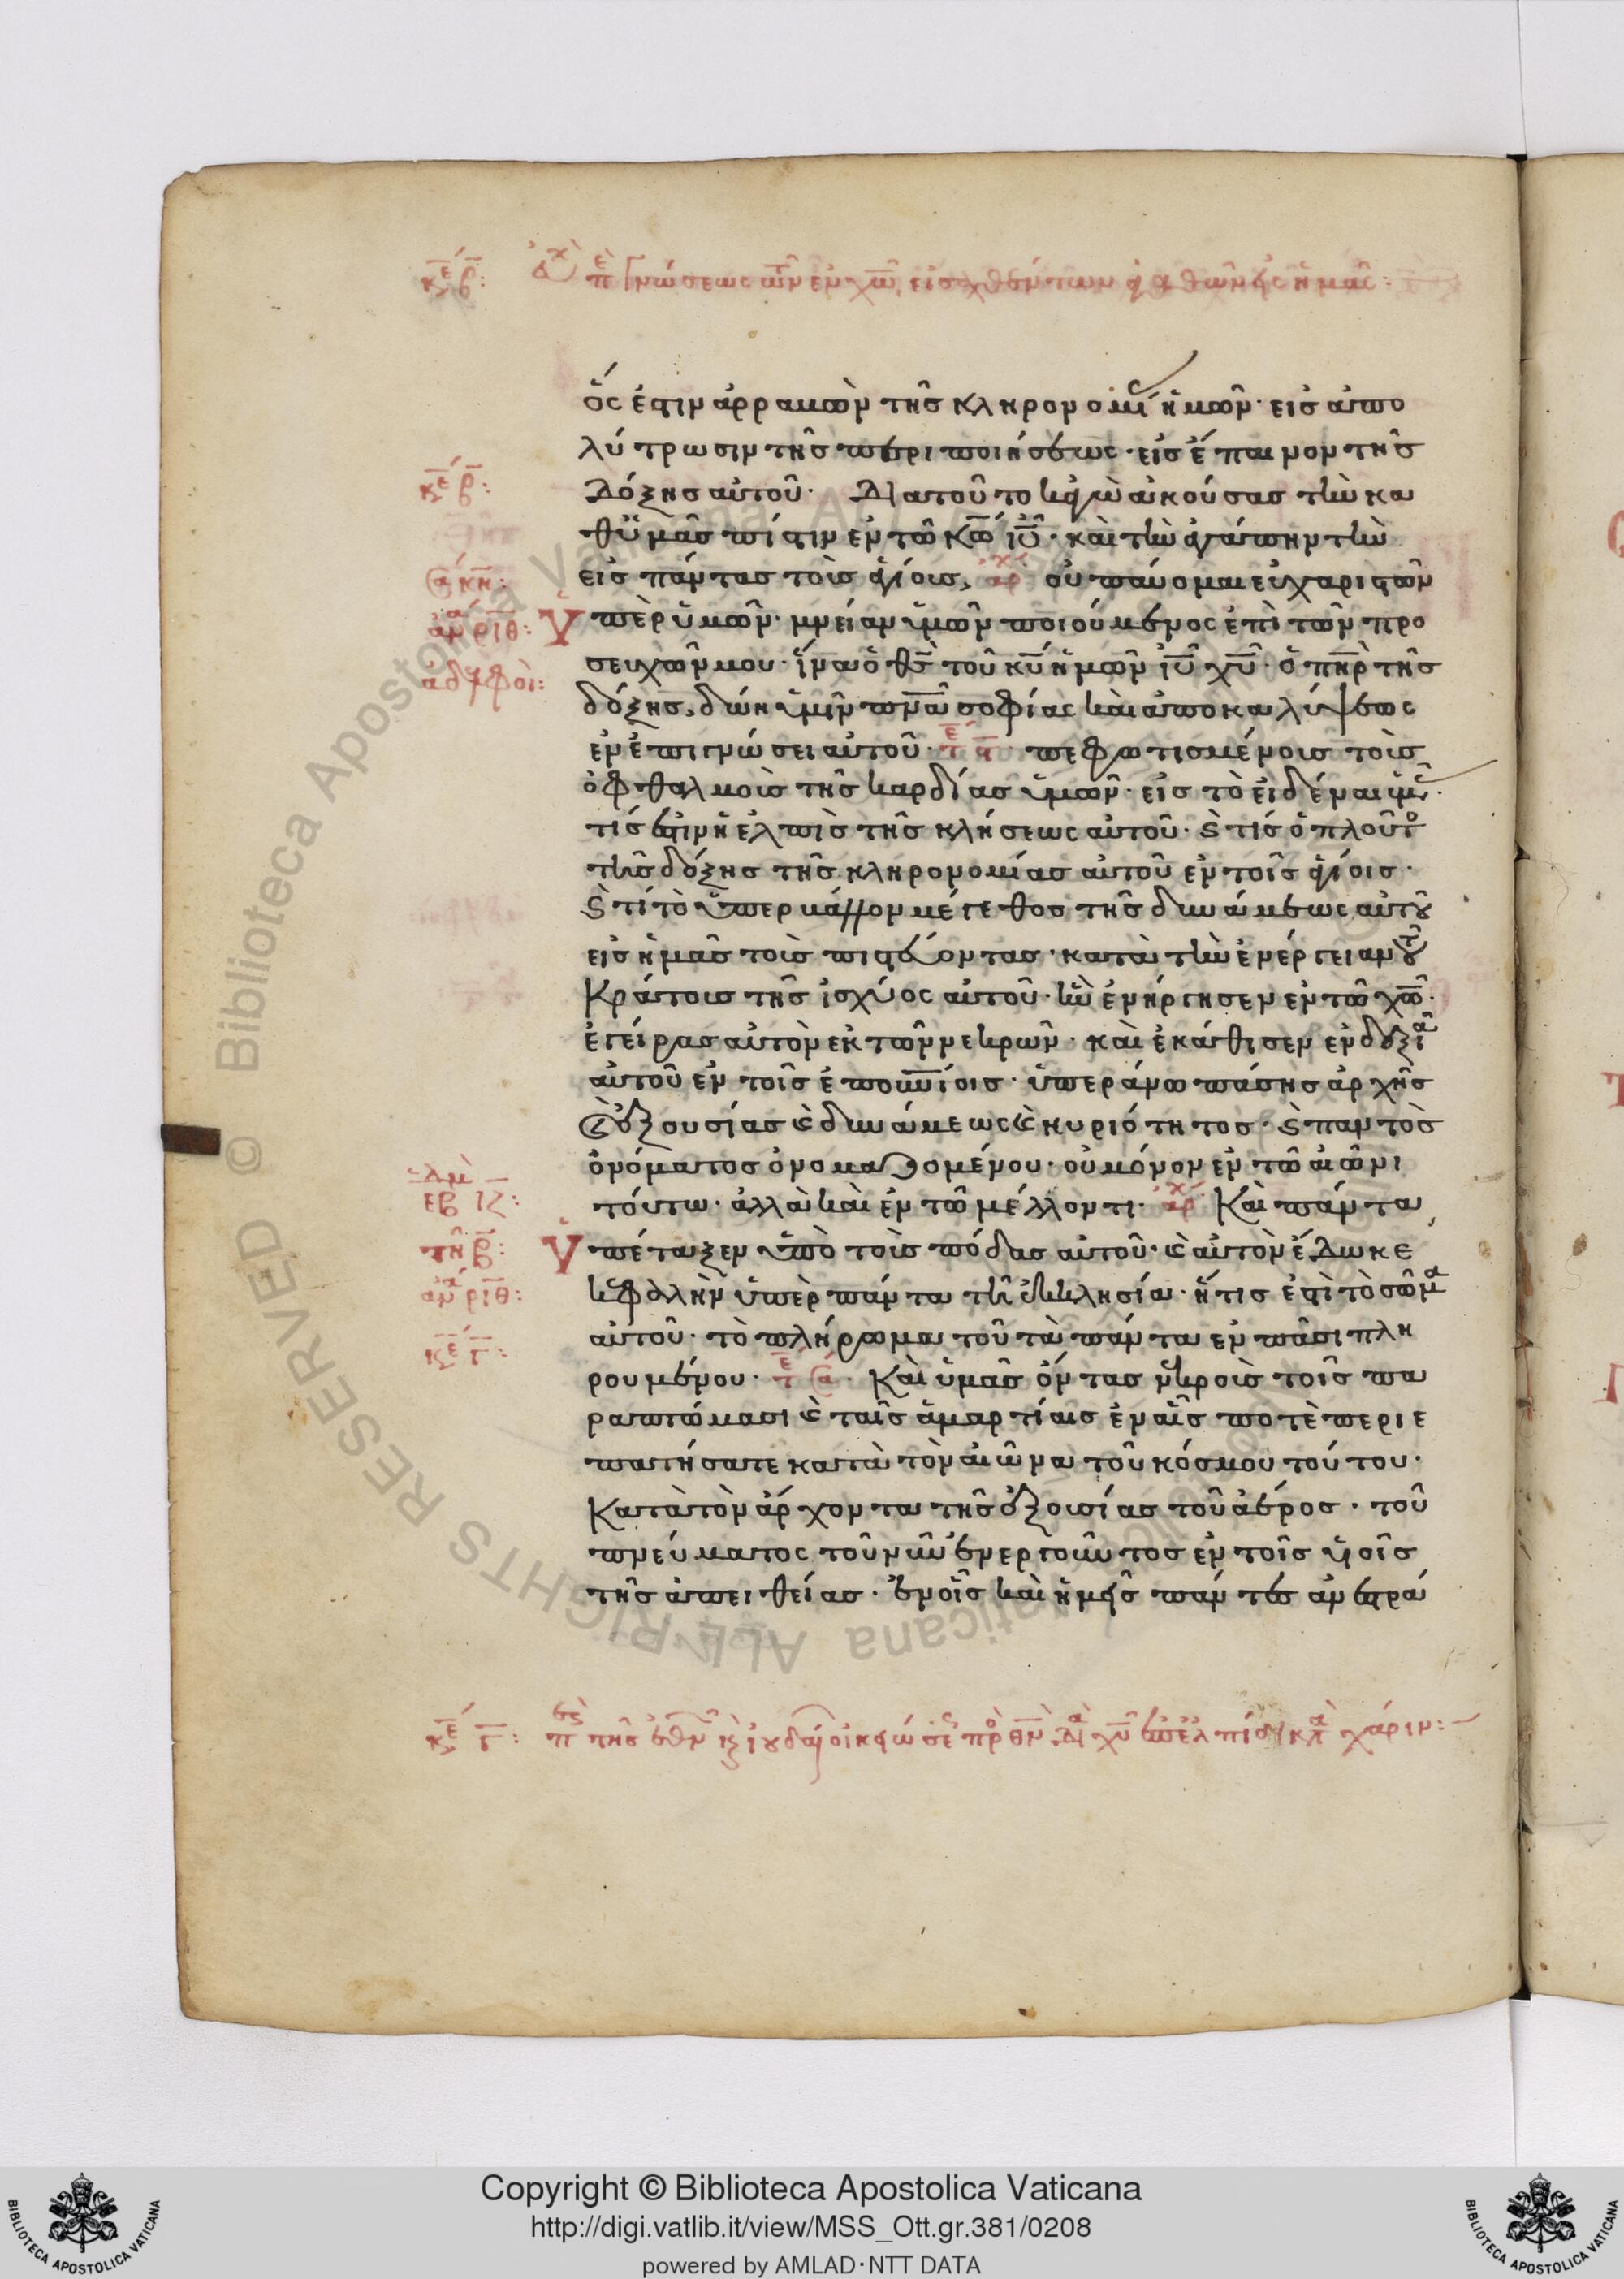 ὅς ἐστιν ἀρραβὼν τῆς κληρονομί ἡμῶν· εἰς ἀπο
λύτρωσιν τῆς περιποιήσεως· εἰς ἔπαινον τῆς
δόξης αὐτοῦ· Διατοῦτο κἀγὼ ἀκούσας τὴν κα
θὑμᾶς πίστιν ἐν τῶ κω ιυ· καὶ τὴν ἀγάπην τὴν
εἰς πάντας τοὺς ἁγίους, αρχ οὐ παύομαι εὐχαριστῶν
Ὑπὲρ ὑμῶν· μνείαν ὑμῶν ποιούμενος ἐπὶ τῶν προ
σευχῶν μου· ἵνα ὁ θς τοῦ κυ ἡμῶν ιυ χυ· ὁ πηρ τῆς
δόξης, δώη ὑμῖν πνα σοφίας καὶ ἀποκαλύψεως
ἐν ἐπιγνώσει αὐτοῦ· πεφωτισμένους τοὺς
ὀφθαλμοὺς τῆς καρδίας ὑμῶν· εἰς τὸ εἰδέναι ὑμ
τίς ἐστιν ἡ ἐλπὶς τῆς κλήσεως αὐτοῦ· ϗ τίς ὁ πλοῦτο
τῆς δόξης τῆς κληρονομίας αὐτοῦ ἐν τοῖς ἁγίοις·
ϗ τί τὸ ὑπερβάλλον μέγεθος τῆς δυνάμεως αὐτοῦ
εἰς ἡμᾶς τοὺς πιστεύοντας· κατὰ τὴν ἐνέργειαν τοῦ
Κράτους τῆς ἰσχύος αὐτοῦ· ἣν ἐνήργησεν ἐν τῶ χω·
ἐγείρας αὐτὸν ἐκ τῶν νεκρῶν· καὶ ἐκάθισεν ἐν δεξιᾶ
αὐτοῦ ἐν τοῖς ἐπουνίοις· ὑπεράνω πάσης ἀρχῆς
ϗ ἐξουσίας ϗ δυνάμεως ϗ κυριότητος· ϗ παντὸς
ὀνόματος ὀνομαζομένου· οὐ μόνον ἐν τῶ αἰῶνι
τούτω· ἀλλὰ καὶ ἐν τῶ μέλλοντι· αρχ Καὶ πάντα
Ὑπέταξεν ὑπὸ τοὺς πόδας αὐτοῦ· ϗ αὐτὸν ἔδωκε
κεφαλὴν ὑπὲρ πάντα τῆ ἐκκλησία· ἥτις ἐστὶ τὸ σῶμα
αὐτοῦ· τὸ πλήρωμα τοῦ τὰ πάντα ἐν πᾶσι πλη
ρουμένου· Καὶ ὑμᾶς ὄντας νεκροὺς τοῖς πα
ραπτώμασι ϗ ταῖς ἁμαρτίαις ἐν αἷς ποτὲ περιε
πατήσατε κατὰ τὸν αἰῶνα τοῦ κόσμου τούτου·
Κατὰ τὸν ἄρχοντα τῆς ἐξουσίας τοῦ ἀέρος· τοῦ
πνεύματος τοῦ νῦν ἐνεργοῦντος ἐν τοῖς υἱοῖς
τῆς ἀπειθείας· ἐν οἷς καὶ ἡμεῖς πάντες ἀνεστρά
Copyright © Biblioteca Apostolica Vaticana
http://digi.vatlib.it/view/MSS_Ott.gr.381/0208
powered by AMLAD·NTT DATA
BIBLIOTECA APOSTOLICA VATICANA
BIBLIOTECA APOSTOLICA VATICANA